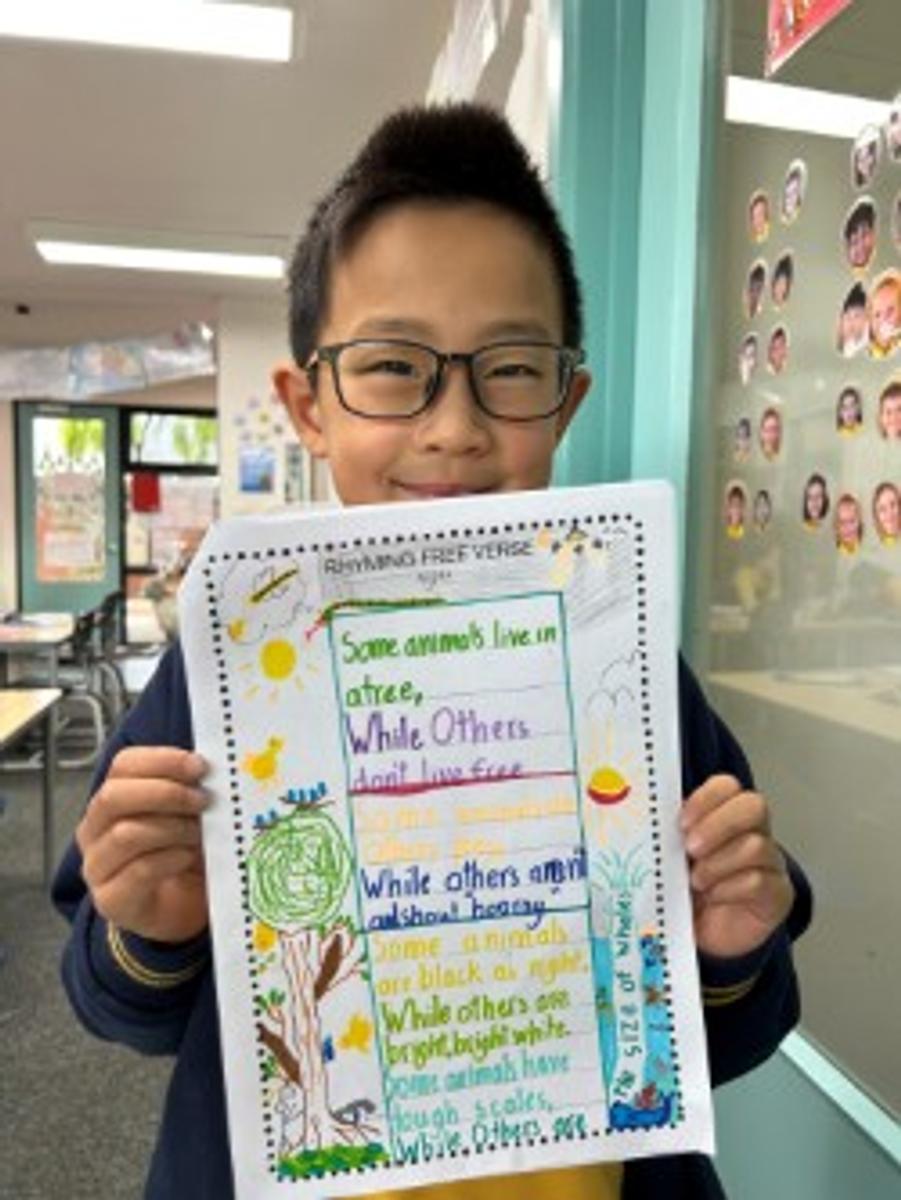 RHYMING FREE VERSE
Some animals live in
a tree,
While Others
don't live free
Some animals
others prey
While others
and shout "hooray"
Some animals
are black as night,
While others are
bright, bright white.
Some animals have
tough scales,
While Others are
the size of whales